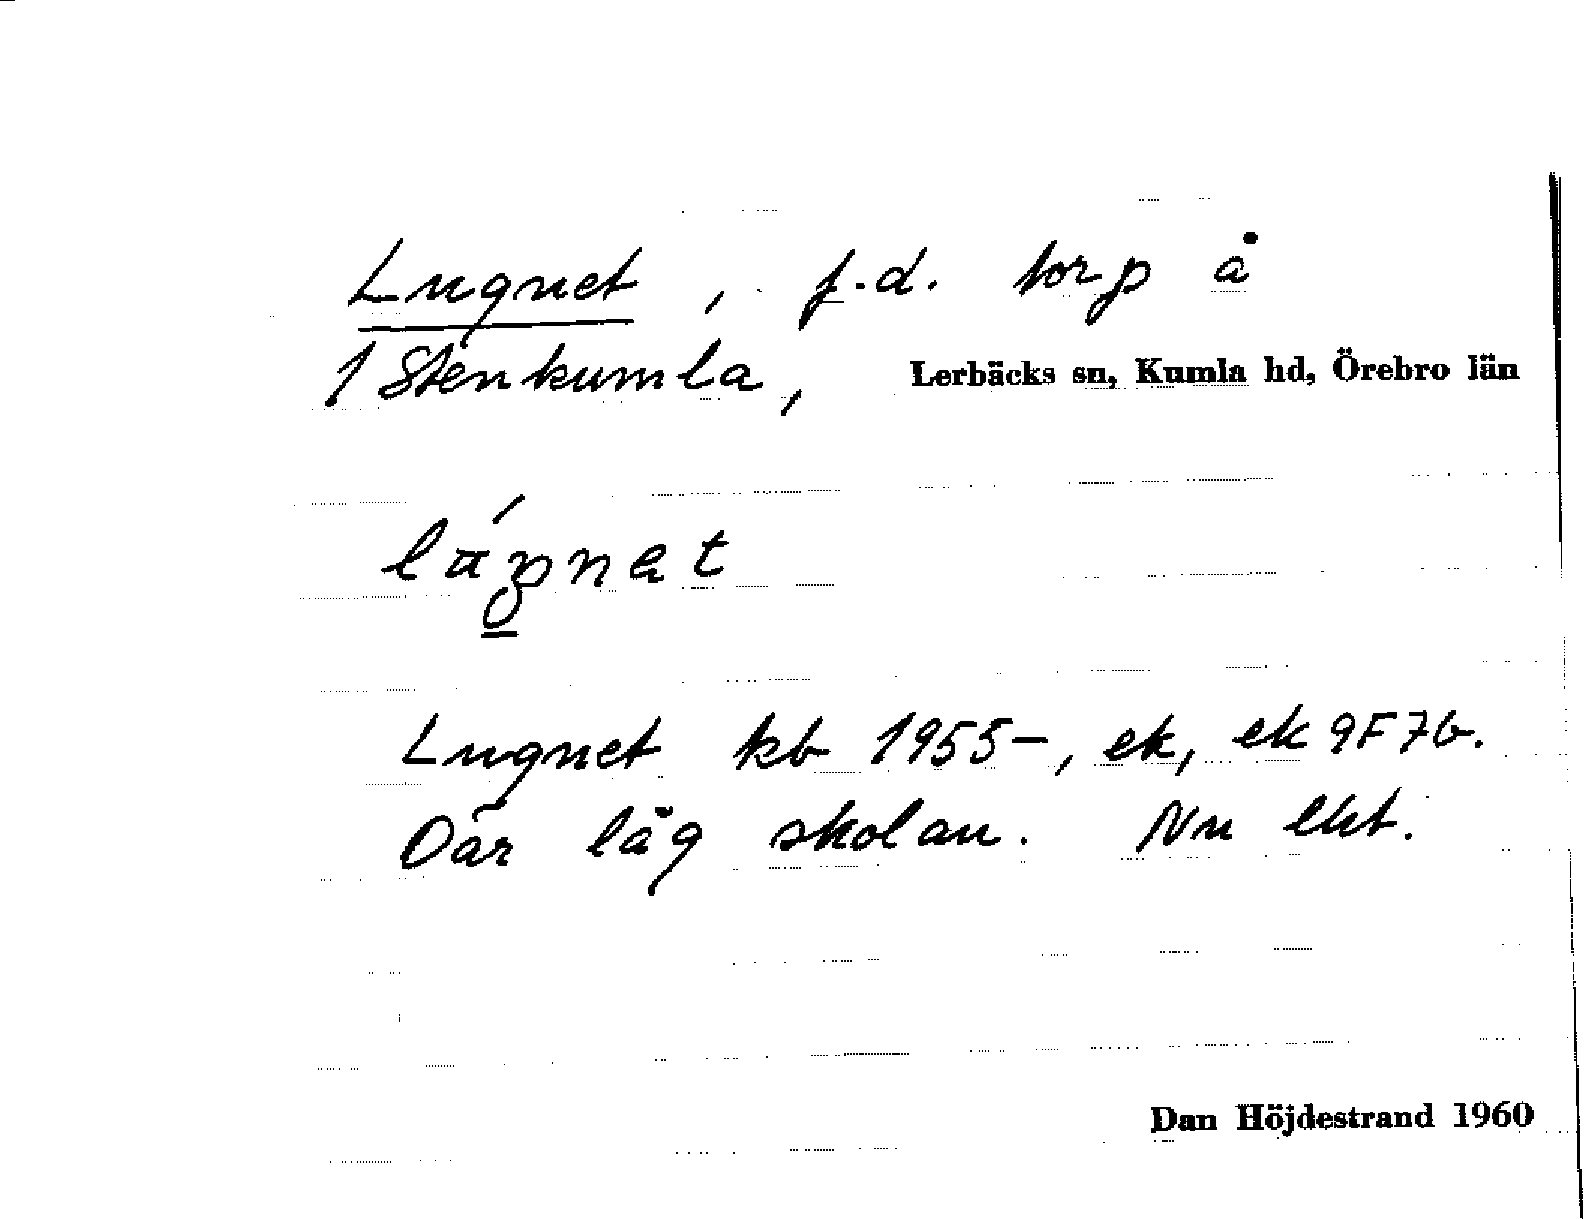 Lugnet, f.d. torp å
1 Stenkumla, Lerbäcks sn, Kumla hd, Örebro län
Lugnet kb 1955–, ek, ek 9F7b.
Där låg skolan. Nu lht.
Dan Höjdestrand 1960